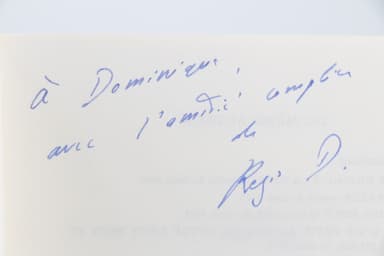 à Dominique,
avec l'amitié complice
de
Régis D.